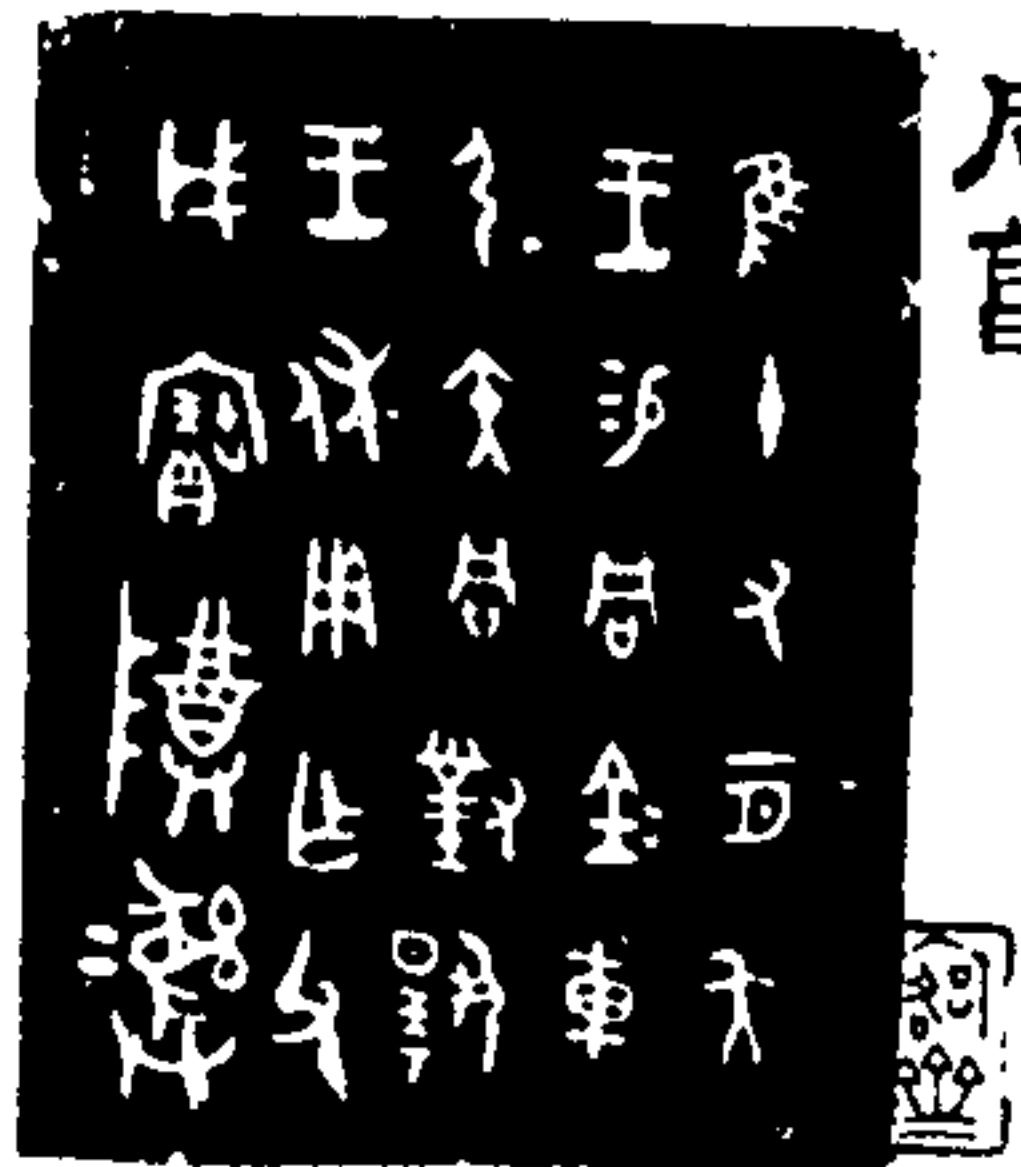 隹十又二月夨
王易同金車
弓矢同對揚
王休用乍父
戊寶尊彝